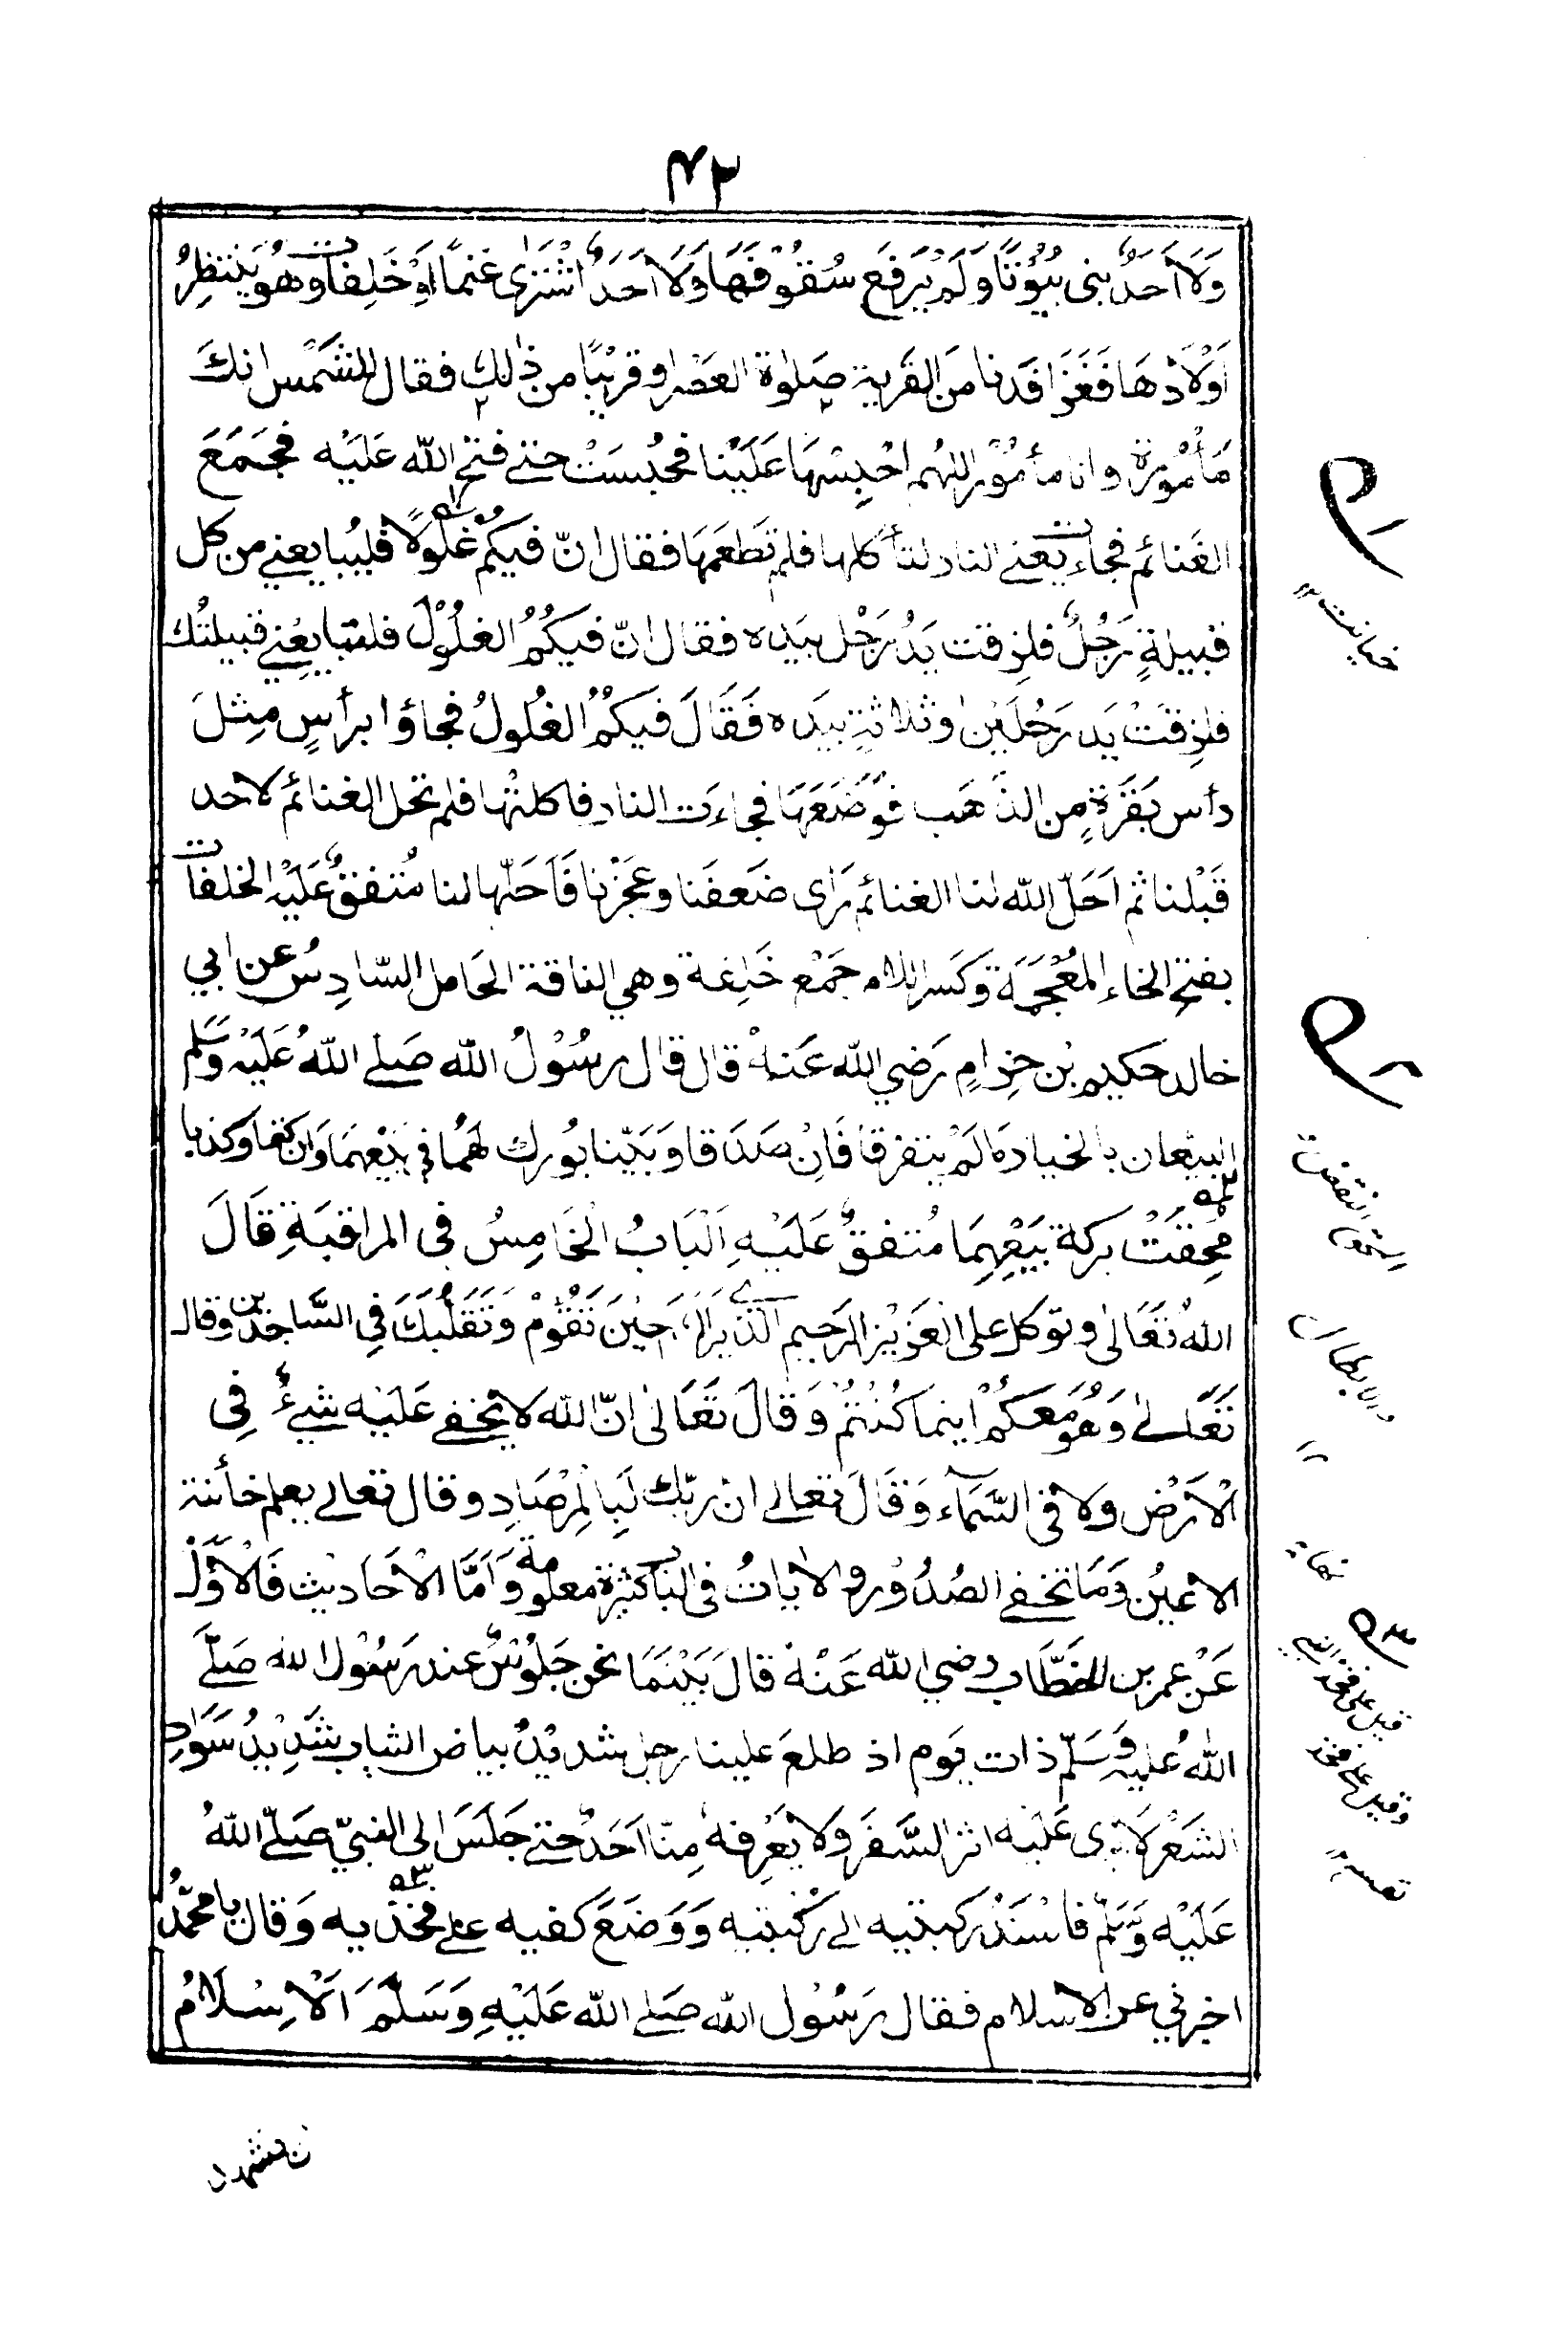 ۴۲
وَلَا اَحَدٌ بنى بُيُوْتًا وَلَمْ يَرْفَع سُقُوْفَهَا وَلَا اَحَدٌ اشْتَرٰى غنمًا اَوْ خَلِفات وهُو يَنتظِرُ
اَوْلَادهَا فَغَزَا فَدنا مِنَ القَرية صَلٰوة العَصْر او قريبًا من ذٰلك فقال للشَمْس انكَ
مَأمُوْرة وانا مأمُوْر اللهُم احْبِسْهَا عَلَيْنا فحُبِسَتْ حتے فتح الله عَلَيْه فجَمَعَ
الغَنائم فجاءت يَعنے النار لتأكلها فلم تَطعَمهَا فقال انّ فيكُمْ غلُولًا فليُبايعنے من كل
قَبيلةٍ رَجُلٌ فلزِقت يَدُ رَجُل بيَده فقال انّ فيكُمُ الغلُوْلَ فلتبايعْنے قبيلتُك
فلزِقَتْ يَد رَجُلَيْن او ثلاثةٍ بيَده فَقَالَ فيكُمُ الغُلُولُ فجاؤا برأسٍ مِثلَ
رأس بَقَرَةٍ مِن الذَهَب فوَضَعَهَا فجاءَت النار فاكلتْها فلم تحل الغنائم لاحد
قَبْلنا ثم اَحَلّ الله لنا الغنائم رَاى ضَعفَنا وعَجْزنا فَاَحَلّها لنا مُتفقٌ عَلَيْه الخلفات
بفتح الخاء المُعْجَمَة وكَسر اللام جَمْع خَلِفة وهي الناقة الحَامل السّادِسُ عن ابي
خالد حكيم بْن حِزامٍ رَضي الله عَنهُ قال قال رسُوْلُ الله صَلے اللهُ عَلَيْه وَسَلّم
البيّعان بالخيار مَا لَمْ يتفرقا فَاِنْ صَدَقا وَبَيّنا بُورك لهُما في بَيْعهمَا وَان كتما وكذبا
مُحِقَتْ بركة بَيْعِهِمَا مُتفقٌ عَلَيْهِ اَلْبَابُ الخَامِسُ فى المراقبَةِ قَالَ
اللهُ تَعَالٰى وتوكل على العَزيْز الرَحيم الَّذے يَرَاكَ حِيْنَ تَقُوْمُ وَتَقَلُّبَكَ فِى السَّاجدين وقال
تَعَالٰى وَهُوَ مَعكُمْ اينما كُنْتُمْ وَقَالَ تَعَالٰى انّ الله لا يخفے عَلَيْه شيءٌ فِى
الْاَرْض ولا فى السَّمَاء وَقَالَ تعالے ان ربّك لَبِالْمِرْصَادِ وقال تعالے يعلم خأئنة
الاعيُن وَمَا تخفے الصُدُوْر والايَاتُ فى الباب كثيرة معلومة وَاَمَّا الْاَحَاديث فَالْاَوَّلُ
عَنْ عمر بن الخَطَّاب رضي الله عَنْهُ قالَ بَيْنَمَا نحن جَلُوْسٌ عند رَسُوْل الله صَلَّے
اللهُ عليْه وَسَلّم ذات يَوم اذ طلعَ علينا رجل شديْدُ بياض الثياب شَدِيْدُ سَوَادِ
الشَعْر لا يُرى عَلَيْه اثر السَّفَر ولا يَعْرِفهُ مِنّا اَحَدٌ حتے جَلَسَ الى النبيّ صَلّے اللهُ
عَلَيْه وَسَلّم فاسْنَدَ ركبتيه الے رُكْبتيه وَوَضَعَ كفيه علے فخذَيه وَقال يا محمَّدُ
اخبرني عن الاسلام فقال رَسُوْل الله صَلے الله عَلَيْهِ وَسَلَّمَ اَلْاِسْلَامُ
۱ه
خيانت ۱۲
۲ه
نكاح
۳ه
قيل على فخذ النبي
وقيل على فخذ
نفسه ۱۲
ان تشهد